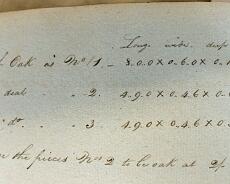 Long. wide. deep
f Oak is No 1 - 8.0.0 x 0.6.0 x 0.
deal - 2. 4.9.0 x 0.4.6 x 0.
do - 3 4.9.0 x 0.4.6 x 0.
the pieces No 2 to be oak at 2/